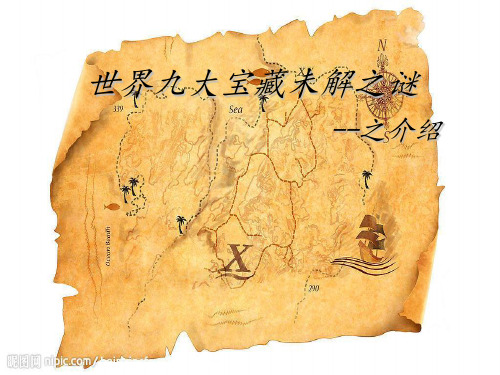 世界九大宝藏未解之谜
--之介绍
N
X
339
Sea
S
Ocean Booth
X
290
昵图网 nipic.com/